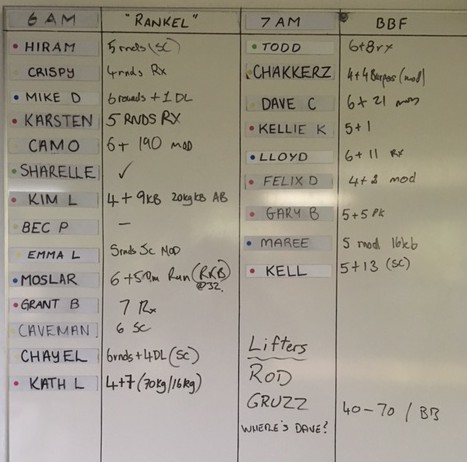 6 AM "RANKEL"
HIRAM 5 rnds (SC)
CRISPY 4 rnds Rx
MIKE D 6 rounds + 1 DL
KARSTEN 5 RNDS RX
CAMO 6 + 190 MOD
SHARELLE ✓
KIM L 4 + 9KB 20kg KB AB
BEC P –
EMMA L 5 rnds Sc MOD
MOSLAR 6 + 50m Run (RXB) @32
GRANT B 7 Rx
CAVEMAN 6 SC
CHAYEL 6 rnds + 4DL (SC)
KATH L 4+7 (70kg/16kg)
7 AM BBF
TODD 6+8 rx
CHAKKERZ 4+4 (mod)
DAVE C 6 + 21
KELLIE K 5 + 1
LLOYD 6 + 11 RX
FELIX D 4 + 2 mod
GARY B 5 + 5
MAREE 5 mod 16kb
KELL 5 + 13 (SC)
Lifters
ROD
GRUZZ 40-70 / BB
WHERE'S DAVE?